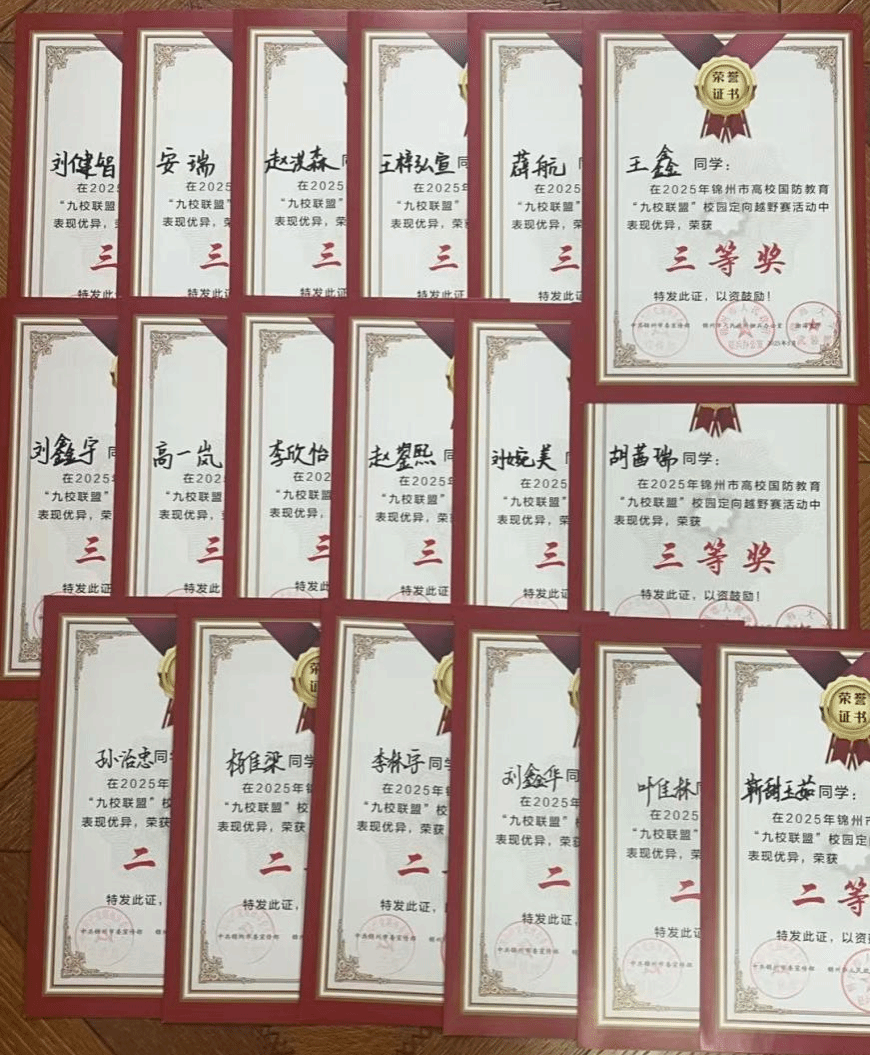 刘健智
在2025
“九校联盟”
表现优异，荣
三
特发此证
安瑞
在2025
“九校联盟”
表现优异，荣
三
特发此证
赵淇森同
在2025
“九校联盟”
表现优异，荣
三
特发此证
王梓弘宣同
在2025
“九校联盟”
表现优异，荣
三
特发此证
薛航同
在2025
“九校联盟”
表现优异，荣
三
特发此证
荣誉
证书
王鑫同学：
在2025年锦州市高校国防教育
“九校联盟”校园定向越野赛活动中
表现优异，荣获
三等奖
特发此证，以资鼓励！
中共锦州市委宣传部
刘鑫宇同
在2025
“九校联盟
表现优异，荣
三
特发此证
高一岚
在2025
“九校联盟
表现优异，荣
三
特发此
李欣怡
在202
“九校联盟
表现优异，荣
三
特发此
赵鋆熙同
在2025
“九校联盟
表现优异，荣
三
特发此证
刘婉美同
在2025
“九校联盟
表现优异，荣
三
特发此证
胡茜瑞同学：
在2025年锦州市高校国防教育
“九校联盟”校园定向越野赛活动中
表现优异，荣获
三等奖
特发此证，以资鼓励！
孙治忠同学
在2025年
“九校联盟”校
表现优异，荣获
二
特发此证，
中共锦州市委宣传部
荣
证
杨佳梁同学
在2025年锦
“九校联盟”校
表现优异，荣获
二
特发此证，
中共锦州市委宣传部
李林宇同学
在2025年
“九校联盟”校
表现优异，荣获
二
特发此证，
中共锦州市委宣传部
刘鑫华同
在2025年
“九校联盟”
表现优异，荣获
二
特发此证，
中共锦州市委宣传部
叶佳林同
在2025年
“九校联盟”
表现优异，荣
二
特发此证，
中共锦州市委宣传部
荣誉
证书
靳甜玉茹同学：
在2025年锦州市
“九校联盟”校园定
表现优异，荣获
二等
特发此证，以资
中共锦州市委宣传部